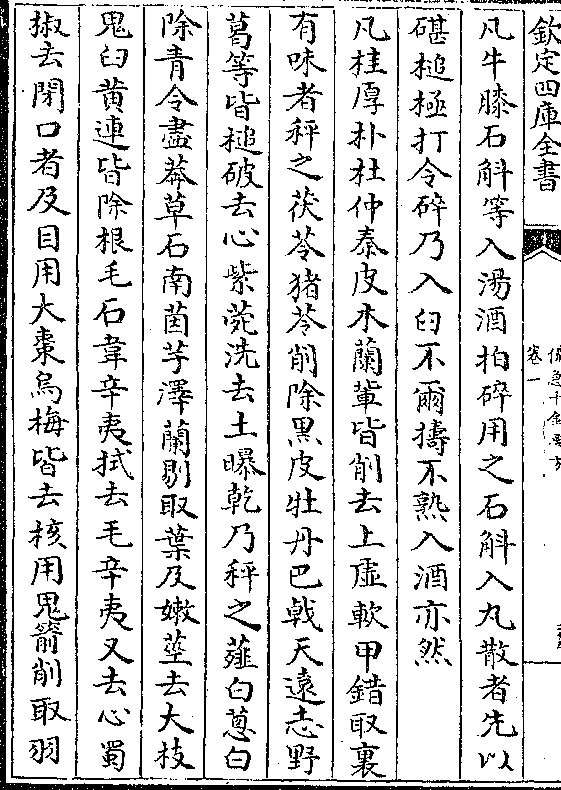 欽定四庫全書
卷一
凡牛膝石斛等入湯酒拍碎用之石斛入丸散者先以
碪槌極打令碎乃入臼不爾擣不熟入酒亦然
凡桂厚朴杜仲秦皮木蘭軰皆削去上虛軟甲錯取裏
有味者秤之茯苓猪苓削除黒皮牡丹巴戟天逺志野
葛等皆槌破去心紫菀洗去土曝乾乃秤之薤白蔥白
除青令盡莽草石南茵芋澤蘭剔取葉及嫩莖去大枝
鬼臼黄連皆除根毛石韋辛夷拭去毛辛夷又去心蜀
椒去閉口者及目用大棗烏梅皆去核用鬼箭削取羽